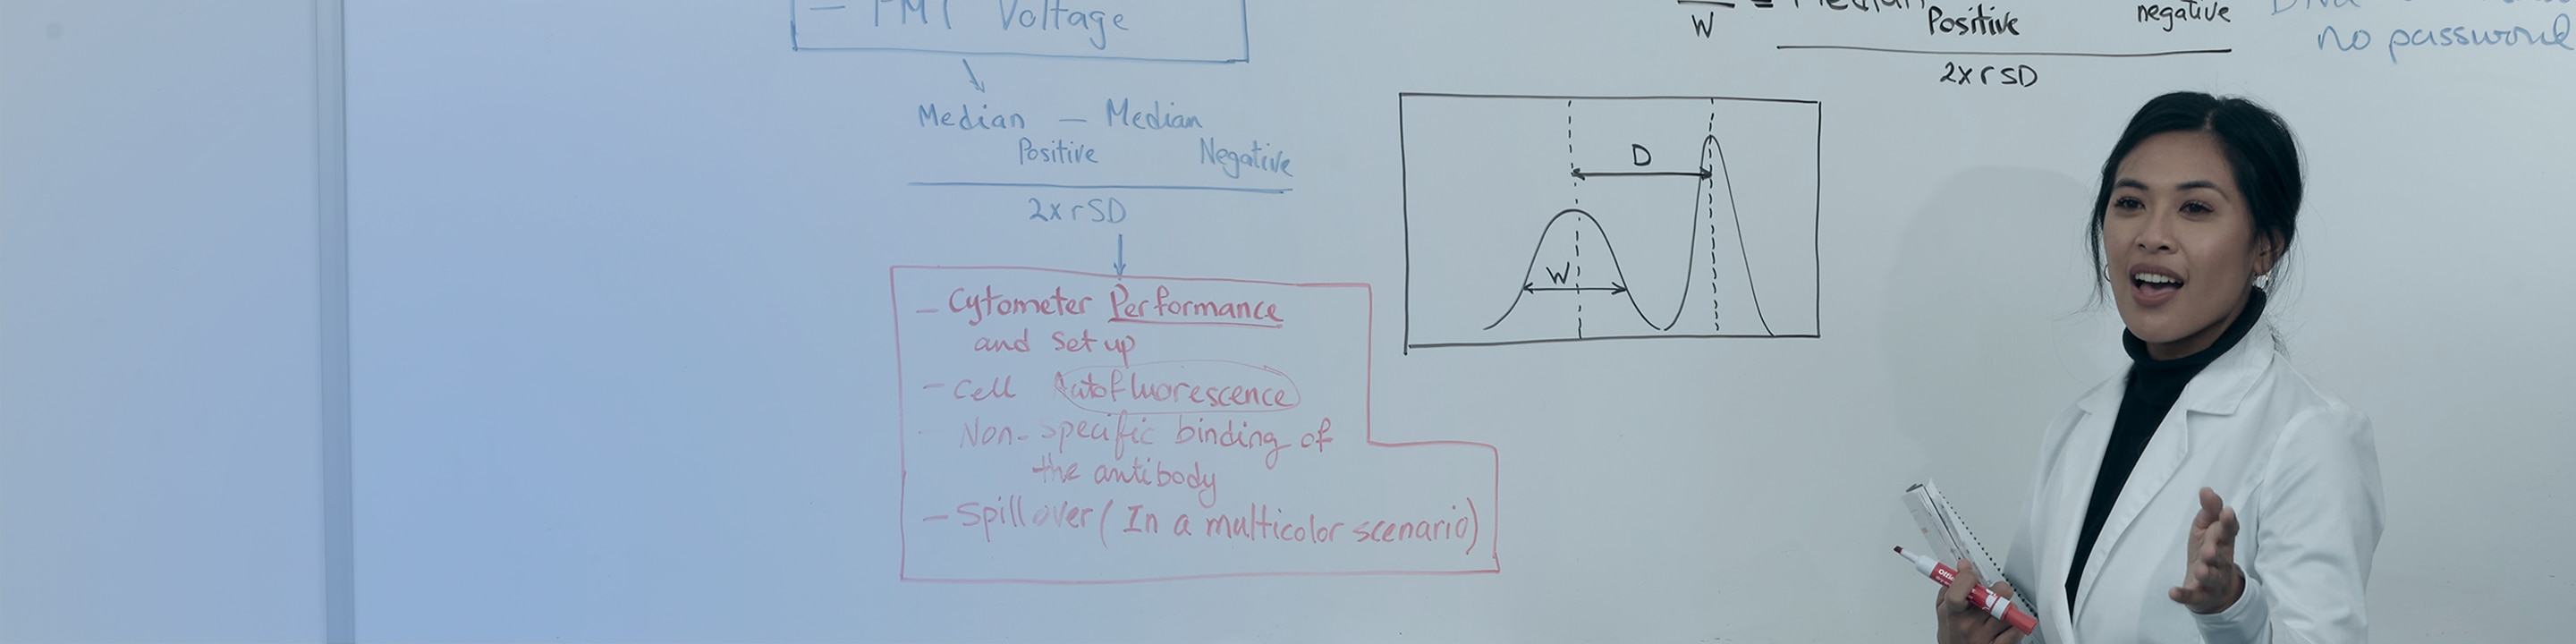 — PMT Voltage
Median — Median
Positive Negative
2xrSD
— Cytometer Performance
and set up
— Cell Autofluorescence
— Non-specific binding of
the antibody
— Spillover (In a multicolor scenario)
W = Median
Positive negative
2xrSD
D
W
no password